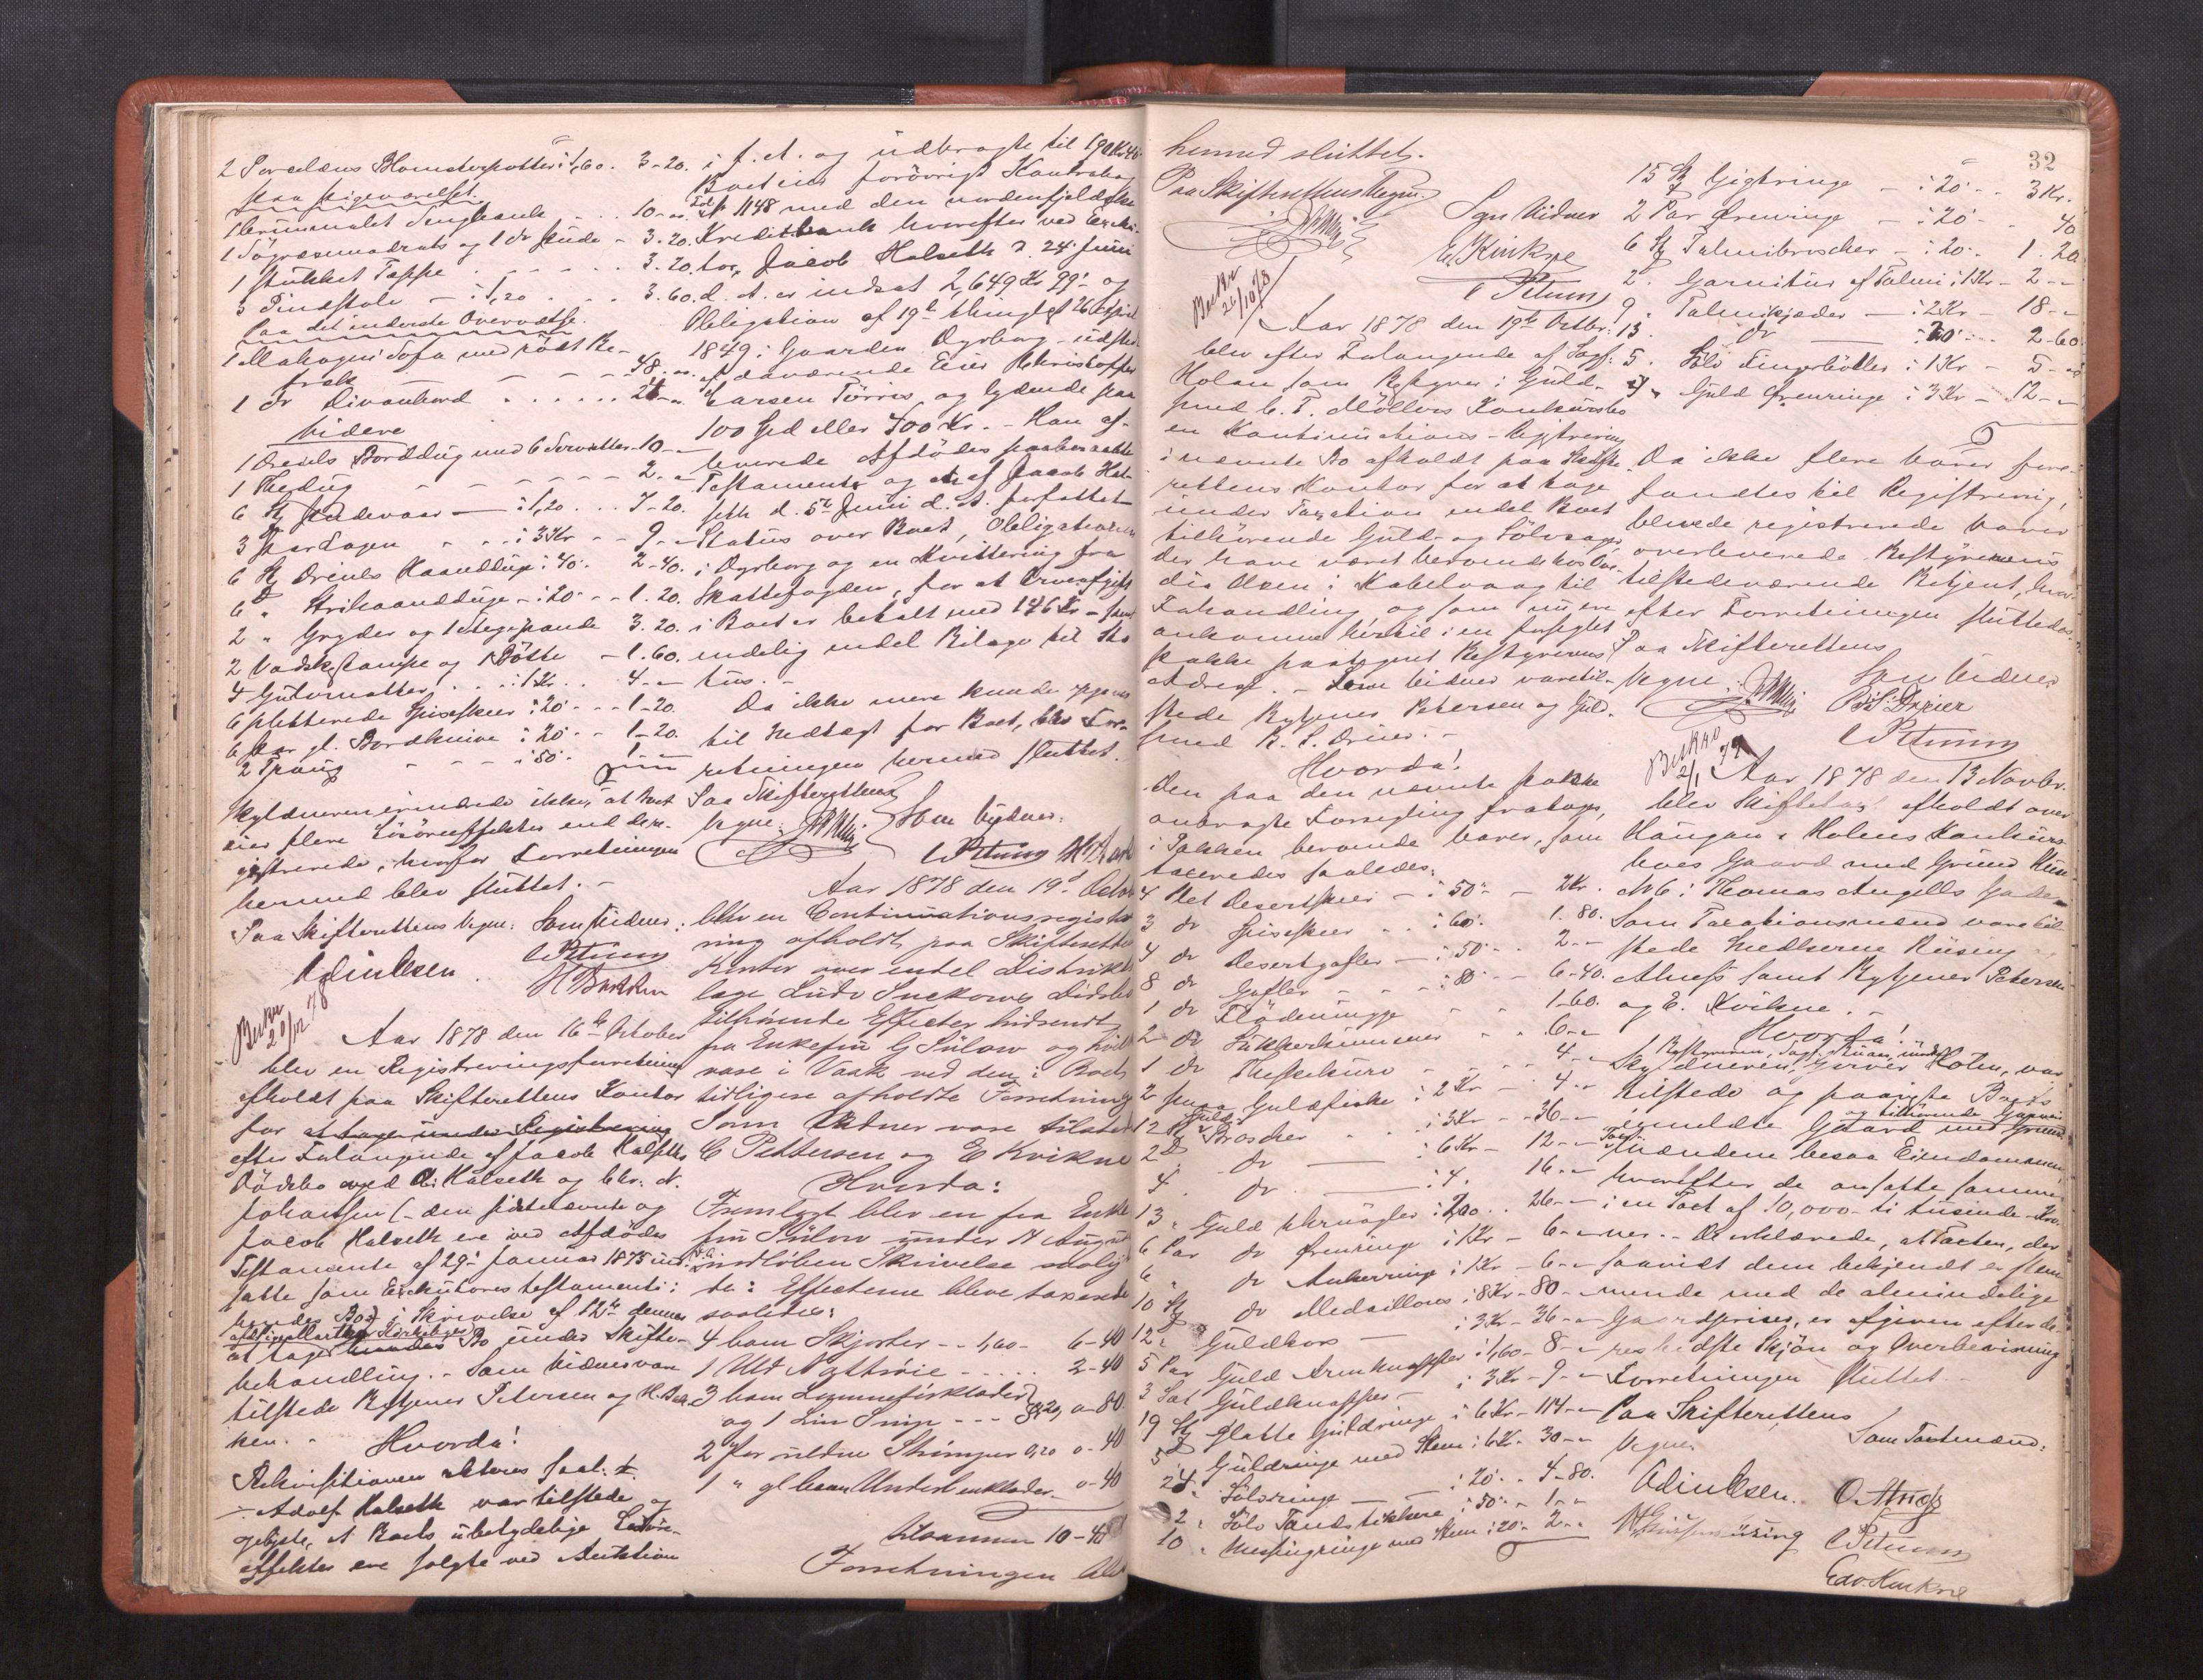 2 Porcelæns Blomsterpotter i 1,60. 3-20.
paa Pigeværelset
1 brunmalet Sengbænk . . 10-"
1 Søgræsmadrats og 1 do Pude - 3.20.
1 stukket Teppe . . . . 3.20.
3 Pindstole - i 1,20 . . . 3.60.
Paa det inderste Overværelse.
1 Mahogni Sofa med rødt Be-
træk - - - - 48. "
1 do Divanbord . . . . .
Videre
1 Dreiels Borddug med 6 Servietter. 10-"
1 Thedug - - - - 2. "
6 St Pudevaar - i 1,20 . . 7-20.
3 Par Lagen - . . i 3Kr - - 9-"
6 St Dreiels Haandduge i 40. 2-40.
6 " Strihaandduge - i 20 - - 1.20.
2 " Gryder og 1 Stegepande 3.20.
2 Vadsk, Lampe og 1 Bøtte - 1.60.
4 Gulvmatter . . . i 1Kr . . 4-"
6 plitterede Spiseskeer i 20 - - 1-20.
6 Par gl. Bordknive i 20 - - 1-20.
2 - - - i 50. 1-"
Skyldneren erindrede ikke, at Boet
eier flere Løsøreeffekter end de re-
gistrerede, hvorfor Forretningen
hermed blev sluttet. -
Paa Skifterettens Vegne: Som Vidner:
Odin Olsen. CPetersen
H Bakken
20/12 78
Aar 1878 den 16de October
blev en Registreringsforretning
afholdt paa Skifterettens Kontor
for at tage under Registrering
efter Forlangende af Jacob Halseths
Dødsbo ved A. Halseth og Chr. N.
Johansen (- den sidstnævnte og
Jacob Halseth ere ved Afdødes
Testamente af 29de Januar 1875 ind-
satte som Exekutores testamenti i
hendes Bo) i Skrivelse af 12te dennes
at tage hendes Bo under Skifte-
behandling. - Som Vidner vare
tilstede Bytjener Petersen og H. Bak-
ken. - Hvorda!
Rekvisitionen akteres saal. t.
- Adolf Halseth var tilstede og
oplyste, at Boets ubetydelige Løsøre-
effekter ere solgte ved Auktion
i f. A. og udbragte til
Boet eier forøvrigt Kontrabog
No 1148 med den nordenfjeldske
Kreditbank hvorefter ved Exeku-
tor Jacob Halseth d. 24. Juni
d. A. er indsat 2,649 Kr 99 og
Obligation af 19de thinglæst 26 April
1849 i Gaarden Dyrborg - udstedt
af daværende Eier Christoffer
Larsen Tørris og lydende paa
100 Spd eller 400 Kr. - Han af-
leverede Afdødes paaberaabte
Testamente og et af Jacob Hal-
seth d. 5te Juni d. A. forfattet
Status over Boet, Obligationen
i Dyrborg og en Kvittering fra
Skattefogden, for at Arveafgift
i Boet er betalt med 176 Kr -
endelig endel Bilage til Sta-
tus. -
Da ikke mere kunde opgives
til Indtægt for Boet, blev For-
retningen hermed sluttet.
Paa Skifterettens
Vegne: Som Vidner:
CPetersen
Aar 1878 den 19de October
blev en Continuationsregistre-
ring afholdt paa Skifterettens
Kontor over endel Distrikts-
læge Dødsbo
tilhørende Effecter hidsendt
fra Enkefru G Sülow og
vare i Vaak ved den i Boet
tidligere afholdte Forretning
Som Vidner vare tilstede
C Pettersen og E Kvikne
Hvorda:
Fremlagt blev en fra Enke-
fru Sülow under 17 August
indløben Skrivelse saaly-
de: Effecterne bleve taxerede
saaledes:
4 bom Skjorter - - 1,60 - 6-40
1 Uld Nattrøie - . . . . 2-40
3 bom Lommetørklæder
og 1 Lin - - - 0,20, 0-80
2 Par uldne Strømper 0,20 0-40
1 " gl bom Underbenklæder 0-40
tilsammen 10-40
Forretningen blev
32
hermed sluttet.
Paa Skifterettens Vegne:
Som Vidner
E. Kvikne
CPetersen
26/10 78
Aar 1878 den 19de Octbr.
blev efter Forlangende af Sagf.
Holan som Bestyrer i Guld-
smed C. T. Møllers Konkursbo
en Kontinuations-Registrering
i nævnte Bo afholdt paa Skifte-
rettens Kontor for at tage
under Taxation endel Boet
tilhørende Guld- og Sølvsager,
der have været beroende hos
Olsen i Kabelvaag til
Forhandling og som nu ere
ankomne hertil i en forseglet
Pakke paategnet Bestyrerens
Adresse. - Som Vidner vare til-
stede Bytjener Petersen og Guld-
smed B. S. Drejer. -
Hvorda!
Den paa den nævnte Pakke
anbragte Forsegling fratoges,
i Pakken beroende Varer, som
taxeredes saaledes:
4 Stk Desertskeer - i 50 - 2Kr.
3 do Spiseskeer . . i 60. 1.80.
4 do Desertgafler - i 50 - 2-"
8 do Gafler - - - i 80 - 6-40.
1 do Flødemugge - - 1-60.
2 do Sukkerkummer - - 6-"
1 do Theskekurv - - - 4-"
2 smaa Guldfiske i 2 Kr - 4-"
12 St Guld Broscher . . i 3Kr - 36-"
2 do - i 6 Kr - 12-"
4. do - i 4. 16-"
13. Guld Uhrnøgler i 2,00 . . 26-"
6 Par do Ørenringe i 1Kr - 6-"
6 " do Ankerringe i 1Kr - 6-"
10 St do Medaillons i 8Kr - 80-"
12. Guldkors - i 3Kr - 36-"
5 Par Guld Ærmknapper i 1,60 - 8-"
3 Sæt Guldknapper - i 3Kr - 9-"
19 St glatte Guldringe i 6Kr - 114-"
5. Guldringe med Sten i 6Kr - 30-"
24. Sølvringe - i 20 . . 4-80.
2. Sølv Tandstikkere i 50 - 1-"
10. Messingringe med Sten i 20 - 2-"
15 St Gigtringe - i 20 - - 3 Kr.
2 Par Ørenringe - i 20 - 40
6 St Talmibroscher - i 20. 1.20.
2. Garnitur af Talmi i 1Kr - 2-"
9. Talmikjæder - i 2Kr - 18-"
13. do - i 20 - - 2-60
5. Sølv Fingerbøller i 1Kr - 5-"
4. Guld Ørenringe i 3Kr - 12-"
Da ikke flere Varer fore-
fandtes til Registrering,
blevede registrerede Varer
overleverede Bestyrerens
tilstedeværende Betjent, hvor-
efter Forretningen sluttedes.
Paa Skifterettens
Vegne: Som Vidner
B. S. Drejer
CPetersen
2/1 79
Aar 1878 den 13 Novbr.
blev Skiftetax afholdt over
Haugan & Holens Konkurs-
boes Gaard med Grund
No 6 i Thomas Angells Gade.
Som Taxationsmænd vare til-
stede Snedkerne
samt Bytjener Petersen
og E. Kvikne. -
Hvorda!
Skyldneren, Garver Holen, var
tilstede og paaviste Boets
og tilhørende
anmeldte Gaard med Grund
Mændene besaa Eiendommen,
hvorefter de ansatte samme
i en Taxt af 10,000 - ti tusinde Kro-
ner. - De erklærede, at Taxten, der
saavidt dem bekjendt er stem-
mende med de almindelige
Gaardspriser, er afgiven efter de-
res bedste Skjøn og Overbevisning
Forretningen sluttet. -
Paa Skifterettens
Vegne: Som Taxtmænd:
Odin Olsen.
CPetersen
Edv. Kvikne